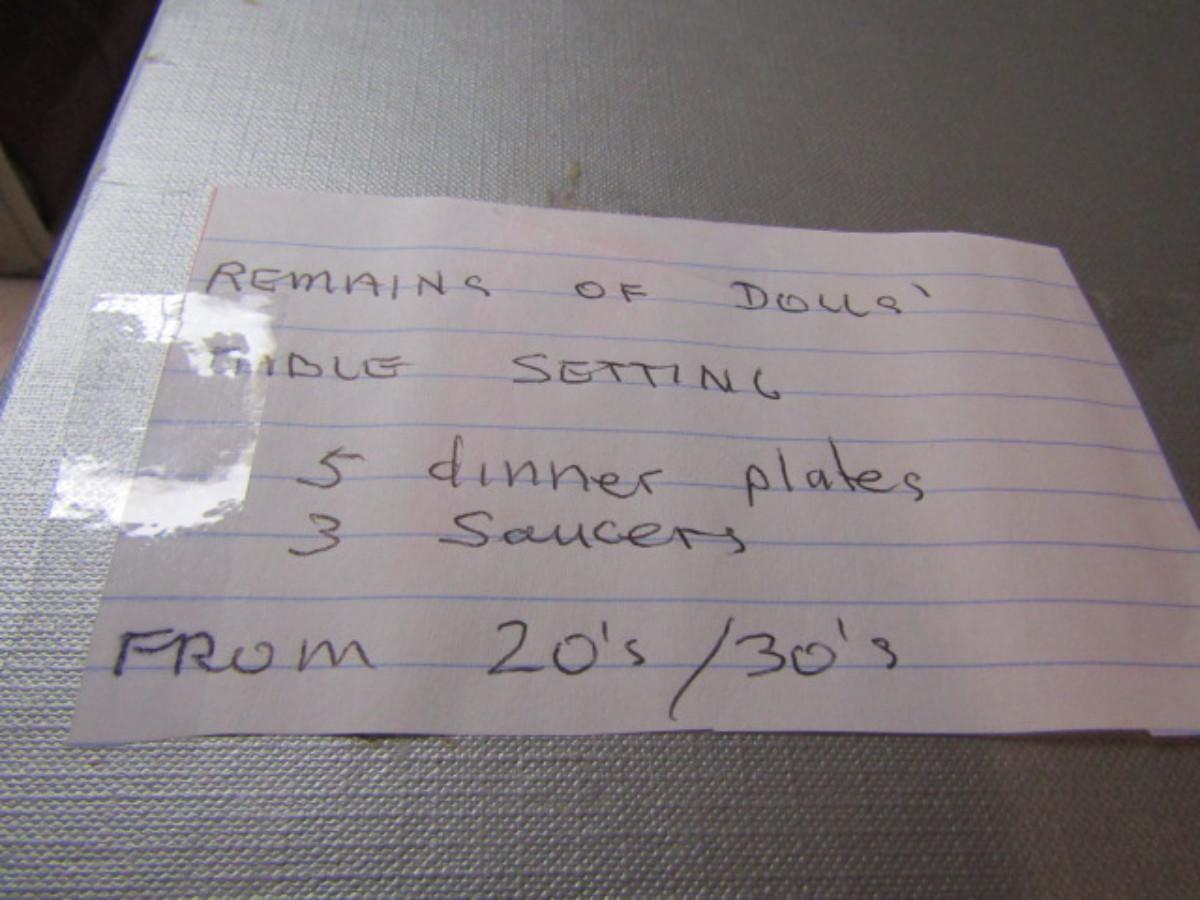 REMAINS OF DOLLS'
TABLE SETTING
5 dinner plates
3 Saucers
FROM 20's / 30's